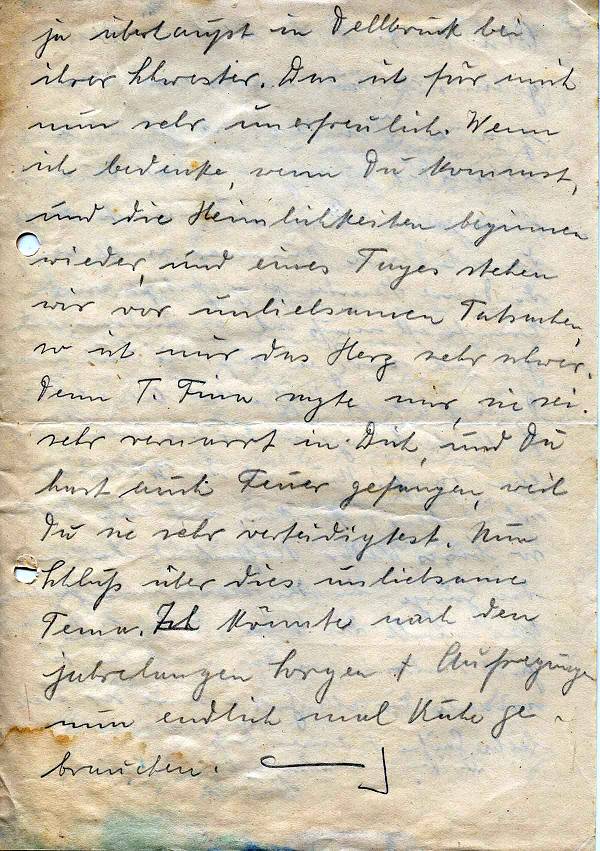 ja überhaupt in Dellbrück bei
ihrer Schwester. Das ist für mich
nun sehr unerfreulich. Wenn
ich bedenke, wenn Du kommst,
und die Heimlichkeiten beginnen
wieder, und eines Tages stehen
wir vor unliebsamen Tatsachen,
so ist mir das Herz sehr schwer.
Denn T. Fina sagte mir, sie sei
sehr vernarrt in Dich, und Du
hast auch Feuer gefangen, weil
Du sie sehr verteidigtest. Nun
Schluß über dies unliebsame
Tema. Ich könnte nach den
jahrelangen Sorgen + Aufregungen
nun endlich mal Ruhe ge-
brauchen.